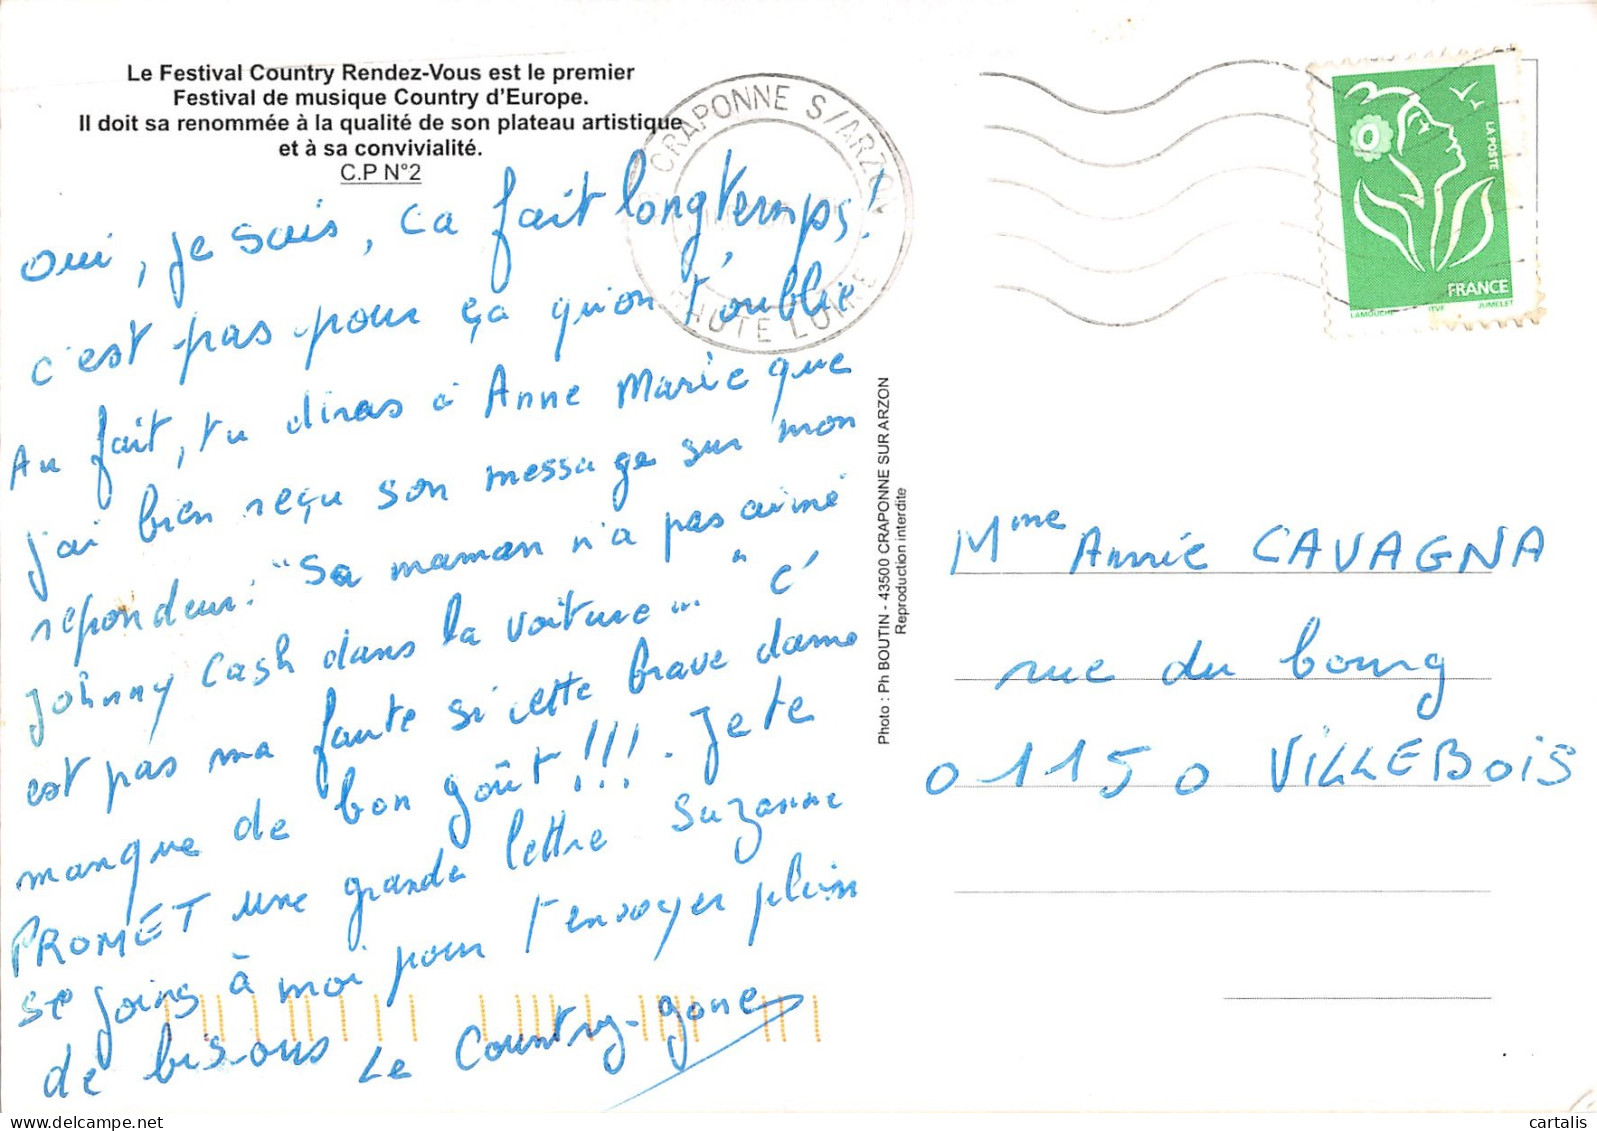 Le Festival Country Rendez-Vous est le premier
Festival de musique Country d'Europe.
Il doit sa renommée à la qualité de son plateau artistique
et à sa convivialité.
C.P N°2
CRAPONNE S/ARZON
HUTE LOIRE
Oui, je sais, ca fait longtemps!
c'est pas pour ça qu'on t'oublie
Au fait, tu diras à Anne Marie que
j'ai bien reçu son message sur mon
repondeur: "Sa maman n'a pas aimé
Johnny Cash dans la voiture..." c'
est pas ma faute si cette brave dame
manque de bon goût!!!. Je te
PROMET une grande lettre Suzanne
se joins à moi pour t'envoyer plein
de bisous Le Country-gone
Photo : Ph BOUTIN - 43500 CRAPONNE SUR ARZON
Reproduction interdite
LA POSTE
FRANCE
LAMOUCHE ITVF JUMELET
Mme Annie CAVAGNA
rue du bourg
01150 VILLEBOIS
cartalis